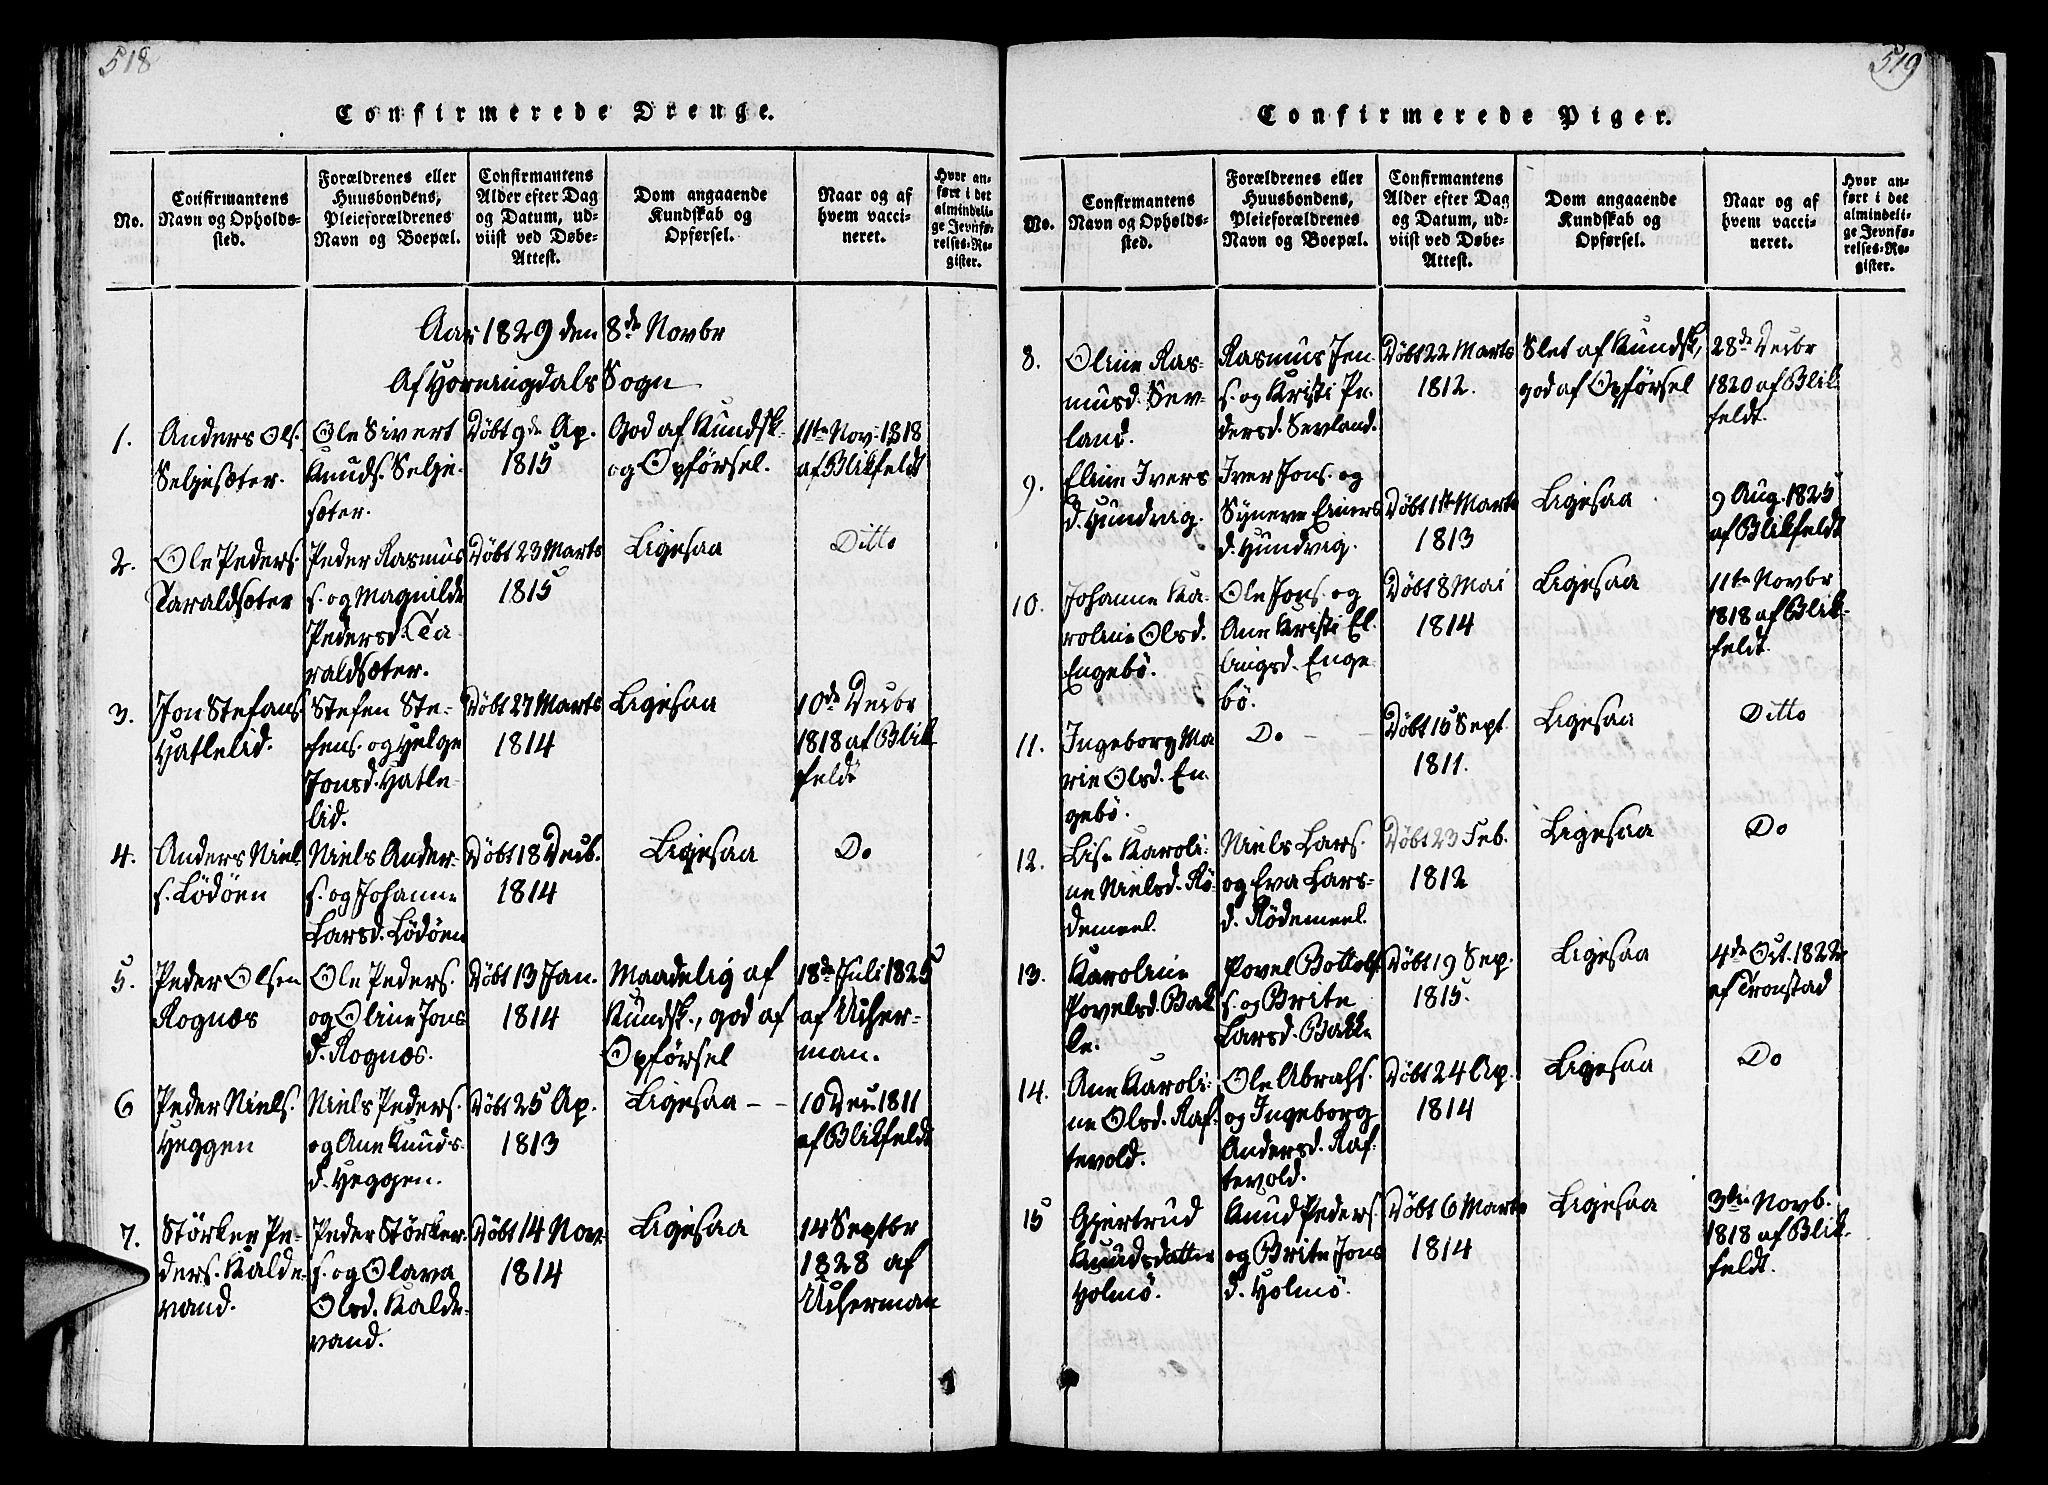 518
Confirmerede Drenge.
No.
Confirmantens
Navn og Opholds-
sted.
Forældrenes eller
Huusbondens,
Pleieforældrenes
Navn og Boepæl.
Confirmantens
Alder efter Dag
og Datum, ud-
viist ved Døbe-
Attest.
Dom angaaende
Kundskab og
Opførsel.
Naar og af
hvem vacci-
neret.
Hvor an-
ført i det
almindeli-
ge Jevnfø-
relses-Re-
gister.
Aar 1829 den 8de Novbr
Af Horningdals Sogn
1.
Anders Ols.
Seljesæter.
Ole Sivert
Knuds. Selje-
sæter.
Døbt 9de Ap.
1815
God af Kundsk.
og Opförsel.
11te Nov. 1818
af Blikfeldt
2.
Ole Peders.
Taraldsæter
Peder Rasmus
s. og Magnilde
Pedersd. Ta-
raldsæter.
Døbt 23 Marts
1815
Ligesaa
Ditto
3.
Jon Stefans.
Hatlelid.
Stefen Ste-
fens. og Helge
Jonsd. Hatle-
lid.
Døbt 27 Marts
1814
Ligesaa
10de Decbr
1818 af Blik
feldt
4.
Anders Niel
s. Lödöen
Niels Ander-
s. og Johanne
Larsd. Lödöen
Døbt 18 Decb.
1814
Ligesaa
Do
5.
Peder Olsen
Rognæs
Ole Peders.
og Oline Jons
d. Rognæs.
Døbt 13 Jan.
1814
Maadelig af
Kundsk., god af
Opförsel
18de Juli 1825
af Ucher-
man.
6
Peder Niels.
Heggen
Niels Peders.
og Ane Knuds-
d. Heggen.
Døbt 25 Ap.
1813
Ligesaa - -
10 Dec. 1811
af Blikfeldt
7.
Störker Pe-
ders. Kalde-
vand.
Peder Störker
s. og Olava
Olsd. Kalde-
vand.
Døbt 14 Nov.
1814
Ligesaa
14 Septbr
1828 af
Ucherman
519
Confirmerede Piger.
No.
Confirmantens
Navn og Opholds-
sted.
Forældrenes eller
Huusbondens,
Pleieforældrenes
Navn og Boepæl.
Confirmantens
Alder efter Dag
og Datum, ud-
viist ved Døbe-
Attest.
Dom angaaende
Kundskab og
Opførsel.
Naar og af
hvem vacci-
neret.
Hvor an-
ført i det
almindeli-
ge Jevnfø-
relses-Re-
gister.
8.
Oline Ras-
musd. Sev-
land.
Rasmus Jen
s. og Kristi Pe
dersd. Sevland.
Døbt 22 Marts
1812.
Slet af Kundsk,
god af Opförsel
28de Decbr
1820 af Blik
feldt.
9.
Eline Ivers
d. Hundvig.
Iver Jons. og
Syneve Einers
d. Hundvig.
Døbt 1ste Marts
1813
Ligesaa
9 Aug. 1825
af Blikfeldt
10.
Johanne Ka-
roline Olsd.
Engebö.
Ole Jons. og
Ane Kristi El
lingsd. Enge-
bö.
Døbt 8 Mai
1814
Ligesaa
11te Novbr
1818 af Blik-
feldt.
11.
Ingeborg Ma
rie Olsd. En-
gebö.
Do - -
Døbt 15 Sept.
1811.
Ligesaa
Ditto
12.
Lise Karoli-
ne Nielsd. Rö-
demeel.
Niels Lars.
og Eva Lars-
d. Rödemeel.
Døbt 23 Feb.
1812
Ligesaa
Do
13.
Karoline
Povelsd. Bak
ke.
Povel Bottolf
s. og Brite
Larsd. Bakke
Døbt 19 Sep.
1815.
Ligesaa
4de Oct. 1822
af Tronstad
14.
Ane Karoli-
ne Olsd. Raf-
tevold.
Ole Abrahs.
og Ingeborg
Andersd. Raf-
tevold.
Døbt 24 Ap.
1814
Ligesaa
Do
15
Gjertrud
Knudsdatter
Holmö.
Knud Peders.
og Brite Jons
d. Holmö.
Døbt 6 Marts
1814
Ligesaa
3die Novb.
1818 af Blik-
feldt.